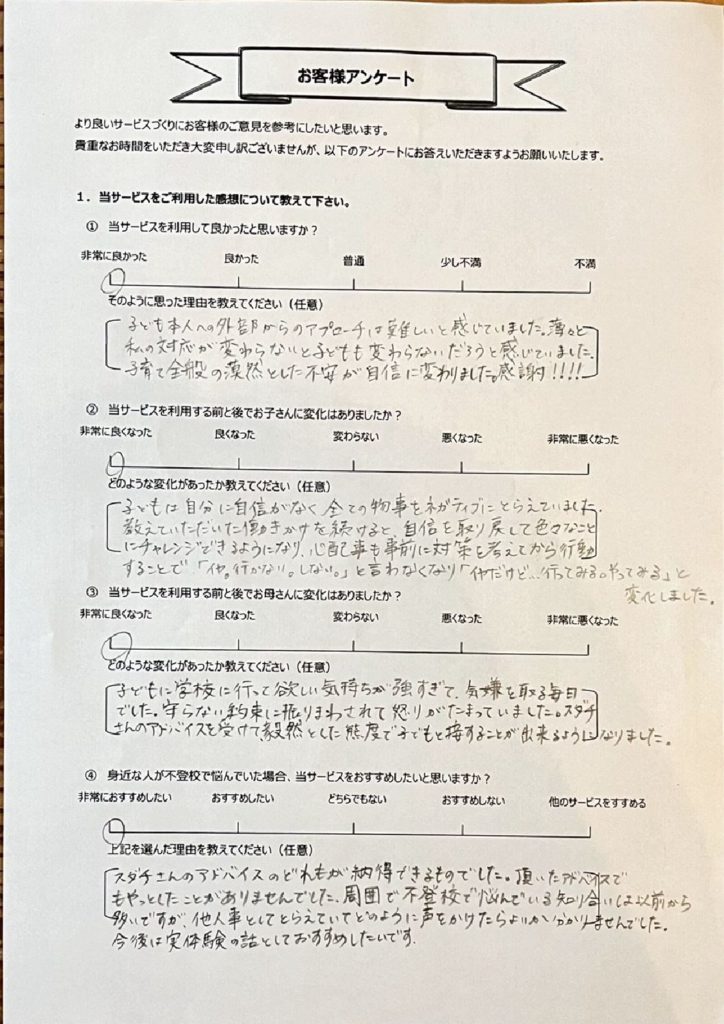 お客様アンケート
より良いサービスづくりにお客様のご意見を参考にしたいと思います。
貴重なお時間をいただき大変申し訳ございませんが、以下のアンケートにお答えいただきますようお願いいたします。
1．当サービスをご利用した感想について教えて下さい。
① 当サービスを利用して良かったと思いますか？
非常に良かった 良かった 普通 少し不満 不満
そのように思った理由を教えてください（任意）
子ども本人への外部からのアプローチは難しいと感じていました。薄々と
私の対応が変わらないと子どもも変わらないだろうと感じていました。
子育て全般の漠然とした不安が自信に変わりました。感謝!!!!
② 当サービスを利用する前と後でお子さんに変化はありましたか？
非常に良くなった 良くなった 変わらない 悪くなった 非常に悪くなった
どのような変化があったか教えてください（任意）
子どもは自分に自信がなく全ての物事をネガティブにとらえていました。
教えていただいた働きかけを続けると、自信を取り戻して色々なこと
にチャレンジできるようになり、心配事も事前に対策を考えてから行動
することで「イヤ。行かない。しない。」と言わなくなり「イヤだけど…行ってみる。やってみる」と
変化しました。
③ 当サービスを利用する前と後でお母さんに変化はありましたか？
非常に良くなった 良くなった 変わらない 悪くなった 非常に悪くなった
どのような変化があったか教えてください（任意）
子どもに学校に行って欲しい気持ちが強すぎて、気嫌を取る毎日
でした。守らない約束に振りまわされて怒りがたまっていました。スダチ
さんのアドバイスを受けて毅然とした態度で子どもと接することが出来るようになりました。
④ 身近な人が不登校で悩んでいた場合、当サービスをおすすめしたいと思いますか？
非常におすすめしたい おすすめしたい どちらでもない おすすめしない 他のサービスをすすめる
上記を選んだ理由を教えてください（任意）
スダチさんのアドバイスのどれもが納得できるものでした。頂いたアドバイスで
もやっとしたことがありませんでした。周囲で不登校で悩んでいる知り合いは以前から
多いですが、他人事としてとらえていてどのように声をかけたらよいか分かりませんでした。
今後は実体験の話としておすすめしたいです。